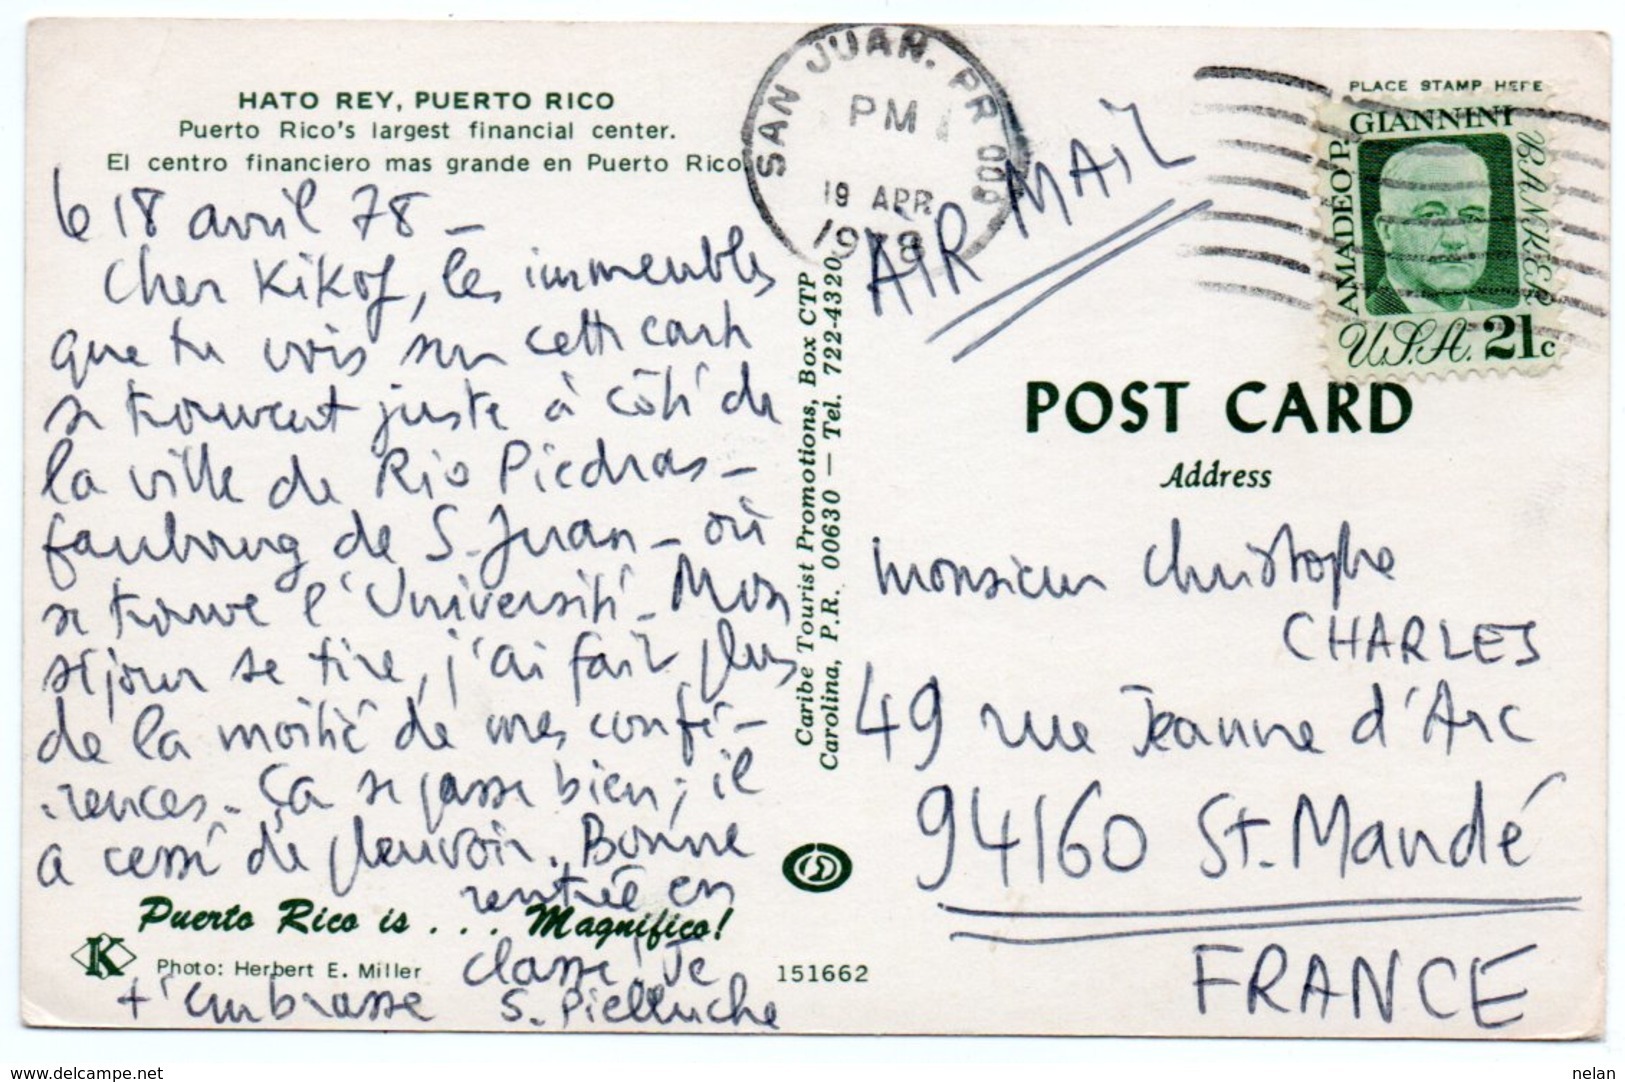 HATO REY, PUERTO RICO
Puerto Rico's largest financial center.
El centro financiero mas grande en Puerto Rico.
le 18 avril 78 –
Cher Kikof, les immeubles
que tu vois sur cette carte
se trouvent juste à côté de
la ville de Rio Piedras –
faubourg de S. Juan – où
se trouve l'Université – Mon
séjour se tire, j'ai fait plus
de la moitié de mes confé-
rences. Ça se passe bien ; il
a cessé de pleuvoir. Bonne
rentrée en
classe ! Je
t'embrasse S.
Puerto Rico is . . . Magnifico!
K
Photo: Herbert E. Miller
151662
Caribe Tourist Promotions, Box CTP
Carolina, P.R. 00630 — Tel. 722-4320
SAN JUAN, PR 009
PM
19 APR
1978
AIR MAIL
PLACE STAMP HERE
AMADEO P. GIANNINI
BANKER
U.S.A. 21c
POST CARD
Address
Monsieur Christophe
CHARLES
49 rue Jeanne d'Arc
94160 St. Mandé
FRANCE
www.delcampe.net
nelan